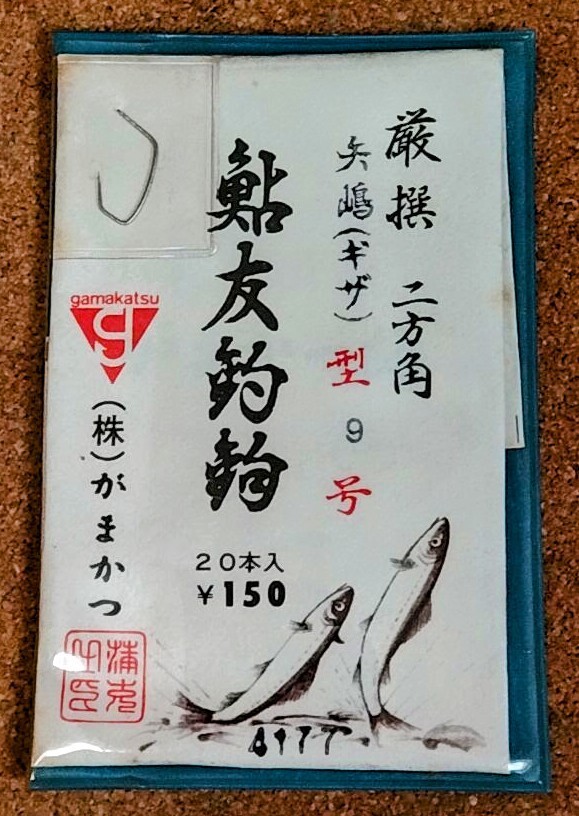 厳撰 二方角
矢嶋(ギザ)型9号
鮎友釣鈎
20本入
¥150
gamakatsu
g
(株)がまかつ
4177